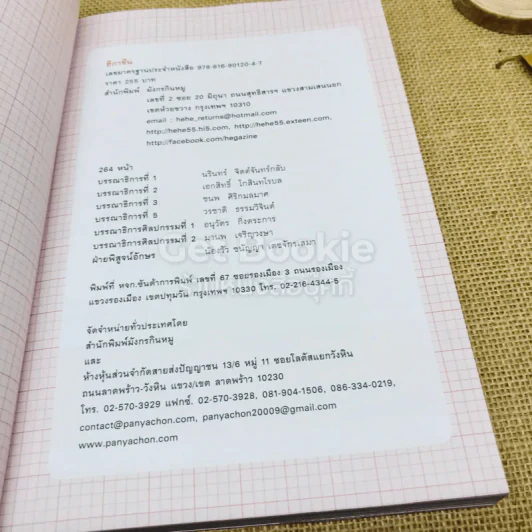 ฮีกาซีน
เลขมาตรฐานประจำหนังสือ 978-616-90120-4-7
ราคา 255 บาท
สำนักพิมพ์ มังกรกินหมู
เลขที่ 2 ซอย 20 มิถุนา ถนนสุทธิสารฯ แขวงสามเสนนอก
เขตห้วยขวาง กรุงเทพฯ 10310
email : hehe_returns@hotmail.com
http://hehe55.hi5.com, http://hehe55.exteen.com,
http://facebook.com/hegazine
264 หน้า
บรรณาธิการที่ 1 นรินทร์ จิตต์จันทร์กลับ
บรรณาธิการที่ 2 เอกสิทธิ์ โกสินทโรบล
บรรณาธิการที่ 3 ชนพ ศิริกมลมาศ
บรรณาธิการที่ 5 วรชาติ ธรรมวิจินต์
บรรณาธิการศิลปกรรมที่ 1 อนุวัตร กึงตระการ
บรรณาธิการศิลปกรรมที่ 2 มานพ เจริญวงษา
ฝ่ายพิสูจน์อักษร น้องวิว ชนัญญา เตชจักรเสมา
Get Bookie
พิมพ์ที่ หจก.ขันติการพิมพ์ เลขที่ 67 ซอยรองเมือง 3 ถนนรองเมือง
แขวงรองเมือง เขตปทุมวัน กรุงเทพฯ 10330 โทร. 02-216-4344-5
จัดจำหน่ายทั่วประเทศโดย
สำนักพิมพ์มังกรกินหมู
และ
ห้างหุ้นส่วนจำกัดสายส่งปัญญาชน 13/6 หมู่ 11 ซอยโลตัสแยกวังหิน
ถนนลาดพร้าว-วังหิน แขวง/เขต ลาดพร้าว 10230
โทร. 02-570-3929 แฟกซ์. 02-570-3928, 081-904-1506, 086-334-0219,
contact@panyachon.com, panyachon20009@gmail.com
www.panyachon.com